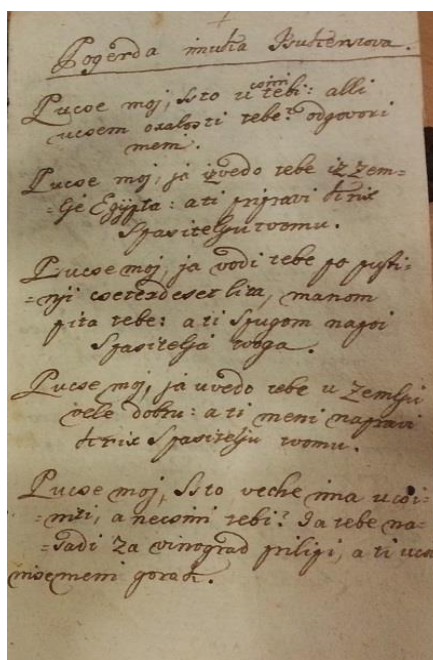 Pogèrda i muka Isukerstova.
Pucse moj, ssto u csini tebi: alli
ucsem oxalosti tebe? odgovori
meni.
Pucse moj, ja izvedo tebe iz zem=
=lje Egÿpta: a ti pripravi krix
Spasitelju tvomu.
Pucse moj, ja vodi tebe po pusti=
=nji cseterdeset lita, manom
pita tebe: a ti spugom napoi
Spasitelja tvoga.
Pucse moj, ja uvedo tebe u Zemlju
vele dobru: a ti meni napravi
krix Spasitelju tvomu.
Pucse moj, ssto veche ima ucsi=
=niti, a necsini tebi? Ja tebe na=
=sadi za vinograd prilipi, a ti ucs
nise meni gorak.